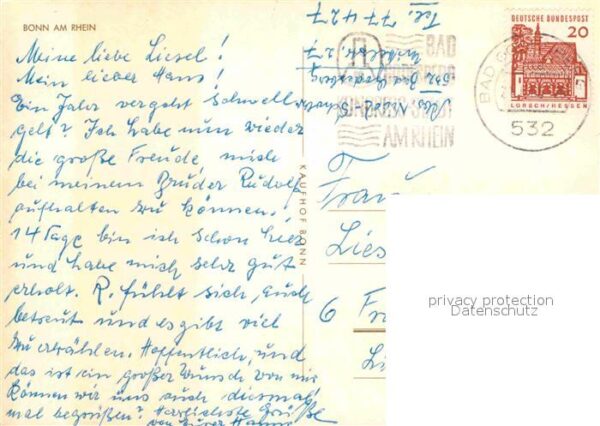 BONN AM RHEIN
Meine liebe Liesel!
Mein lieber Hans!
Ein Jahr vergeht schnell
gelt? Ich habe nun wieder
die große Freude, mich
bei meinem Bruder Rudolf
aufhalten zu können!
14 Tage bin ich schon hier
und habe mich sehr gut
erholt. R. fühlt sich auch
betreut und es gibt viel
zu erzählen. Hoffentlich, und
das ist ein großer Wunsch von mir
können wir uns auch diesmal
mal begrüßen? Herzlichste Grüße
von Eurer Hanna
Tel. 77427
532 Bad Godesberg
KAUFHOF BONN
BAD
GODESBERG
AM RHEIN
BAD
532
DEUTSCHE BUNDESPOST
20
LORSCH/HESSEN
Frau
Lies
6 Fr
Li
privacy protection
Datenschutz